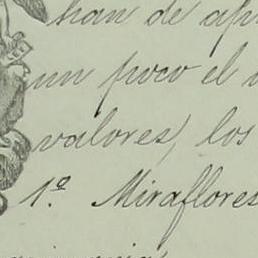 han de
un poco el
valores, los
1º Miraflores